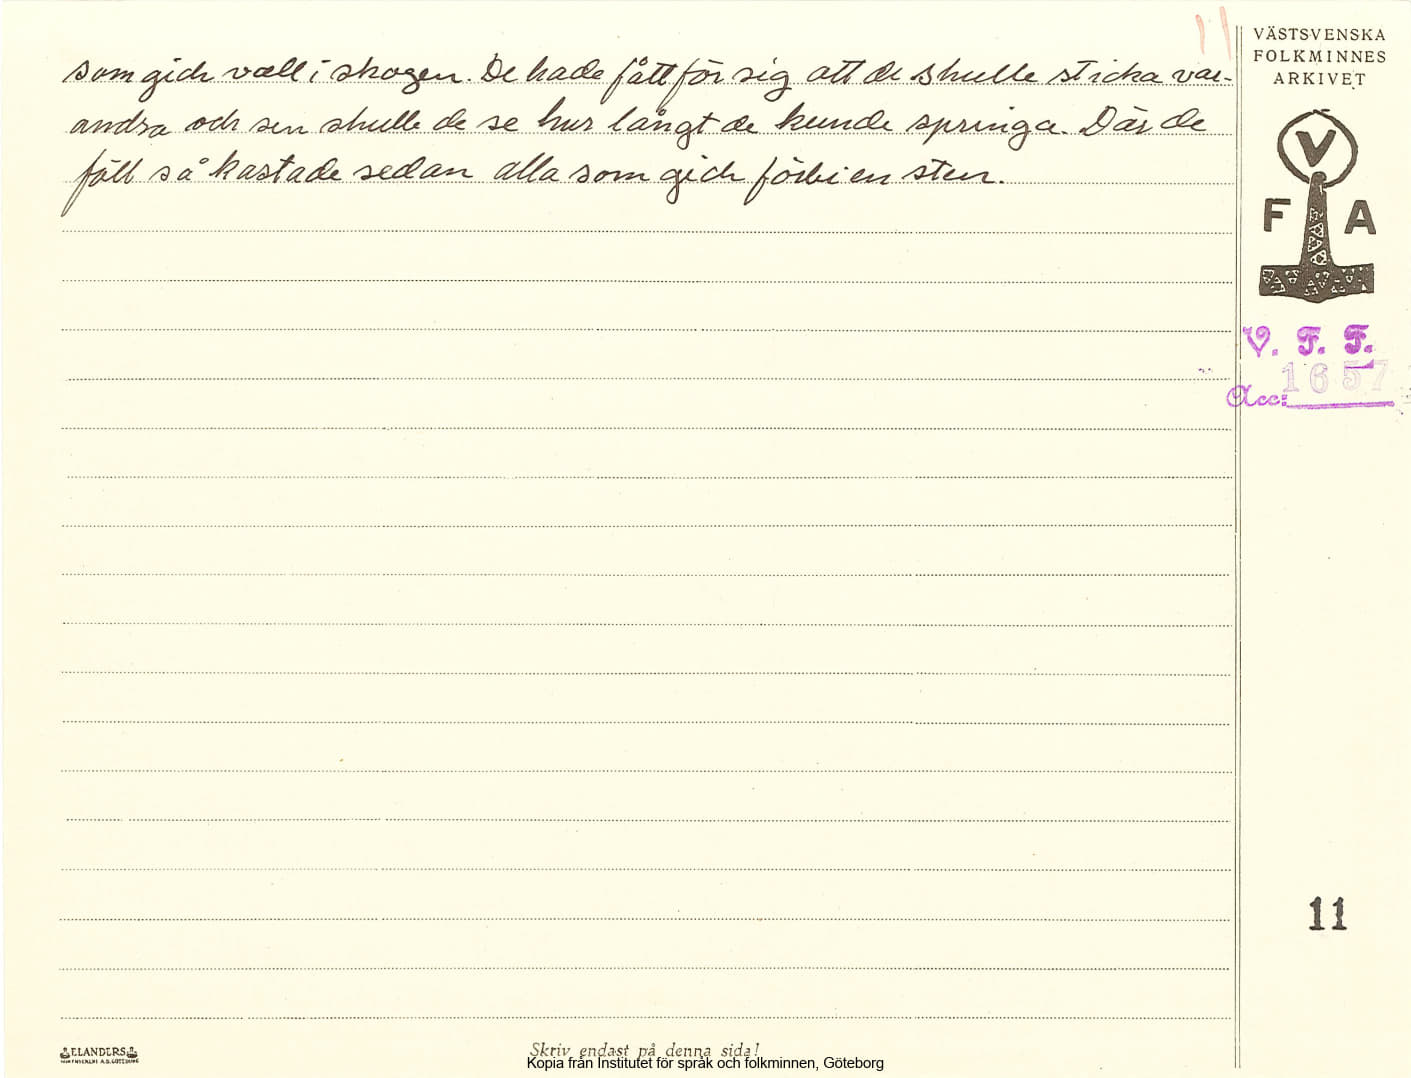 11
som gick vall i skogen. De hade fått för sig att de skulle sticka var-
andra och sen skulle de se hur långt de kunde springa. Där de
föll så kastade sedan alla som gick förbi en sten.
VÄSTSVENSKA
FOLKMINNES
ARKIVET
V
F A
V. F. F.
1657
Acc:
11
ELANDERS
Skriv endast på denna sida!
Kopia från Institutet för språk och folkminnen, Göteborg